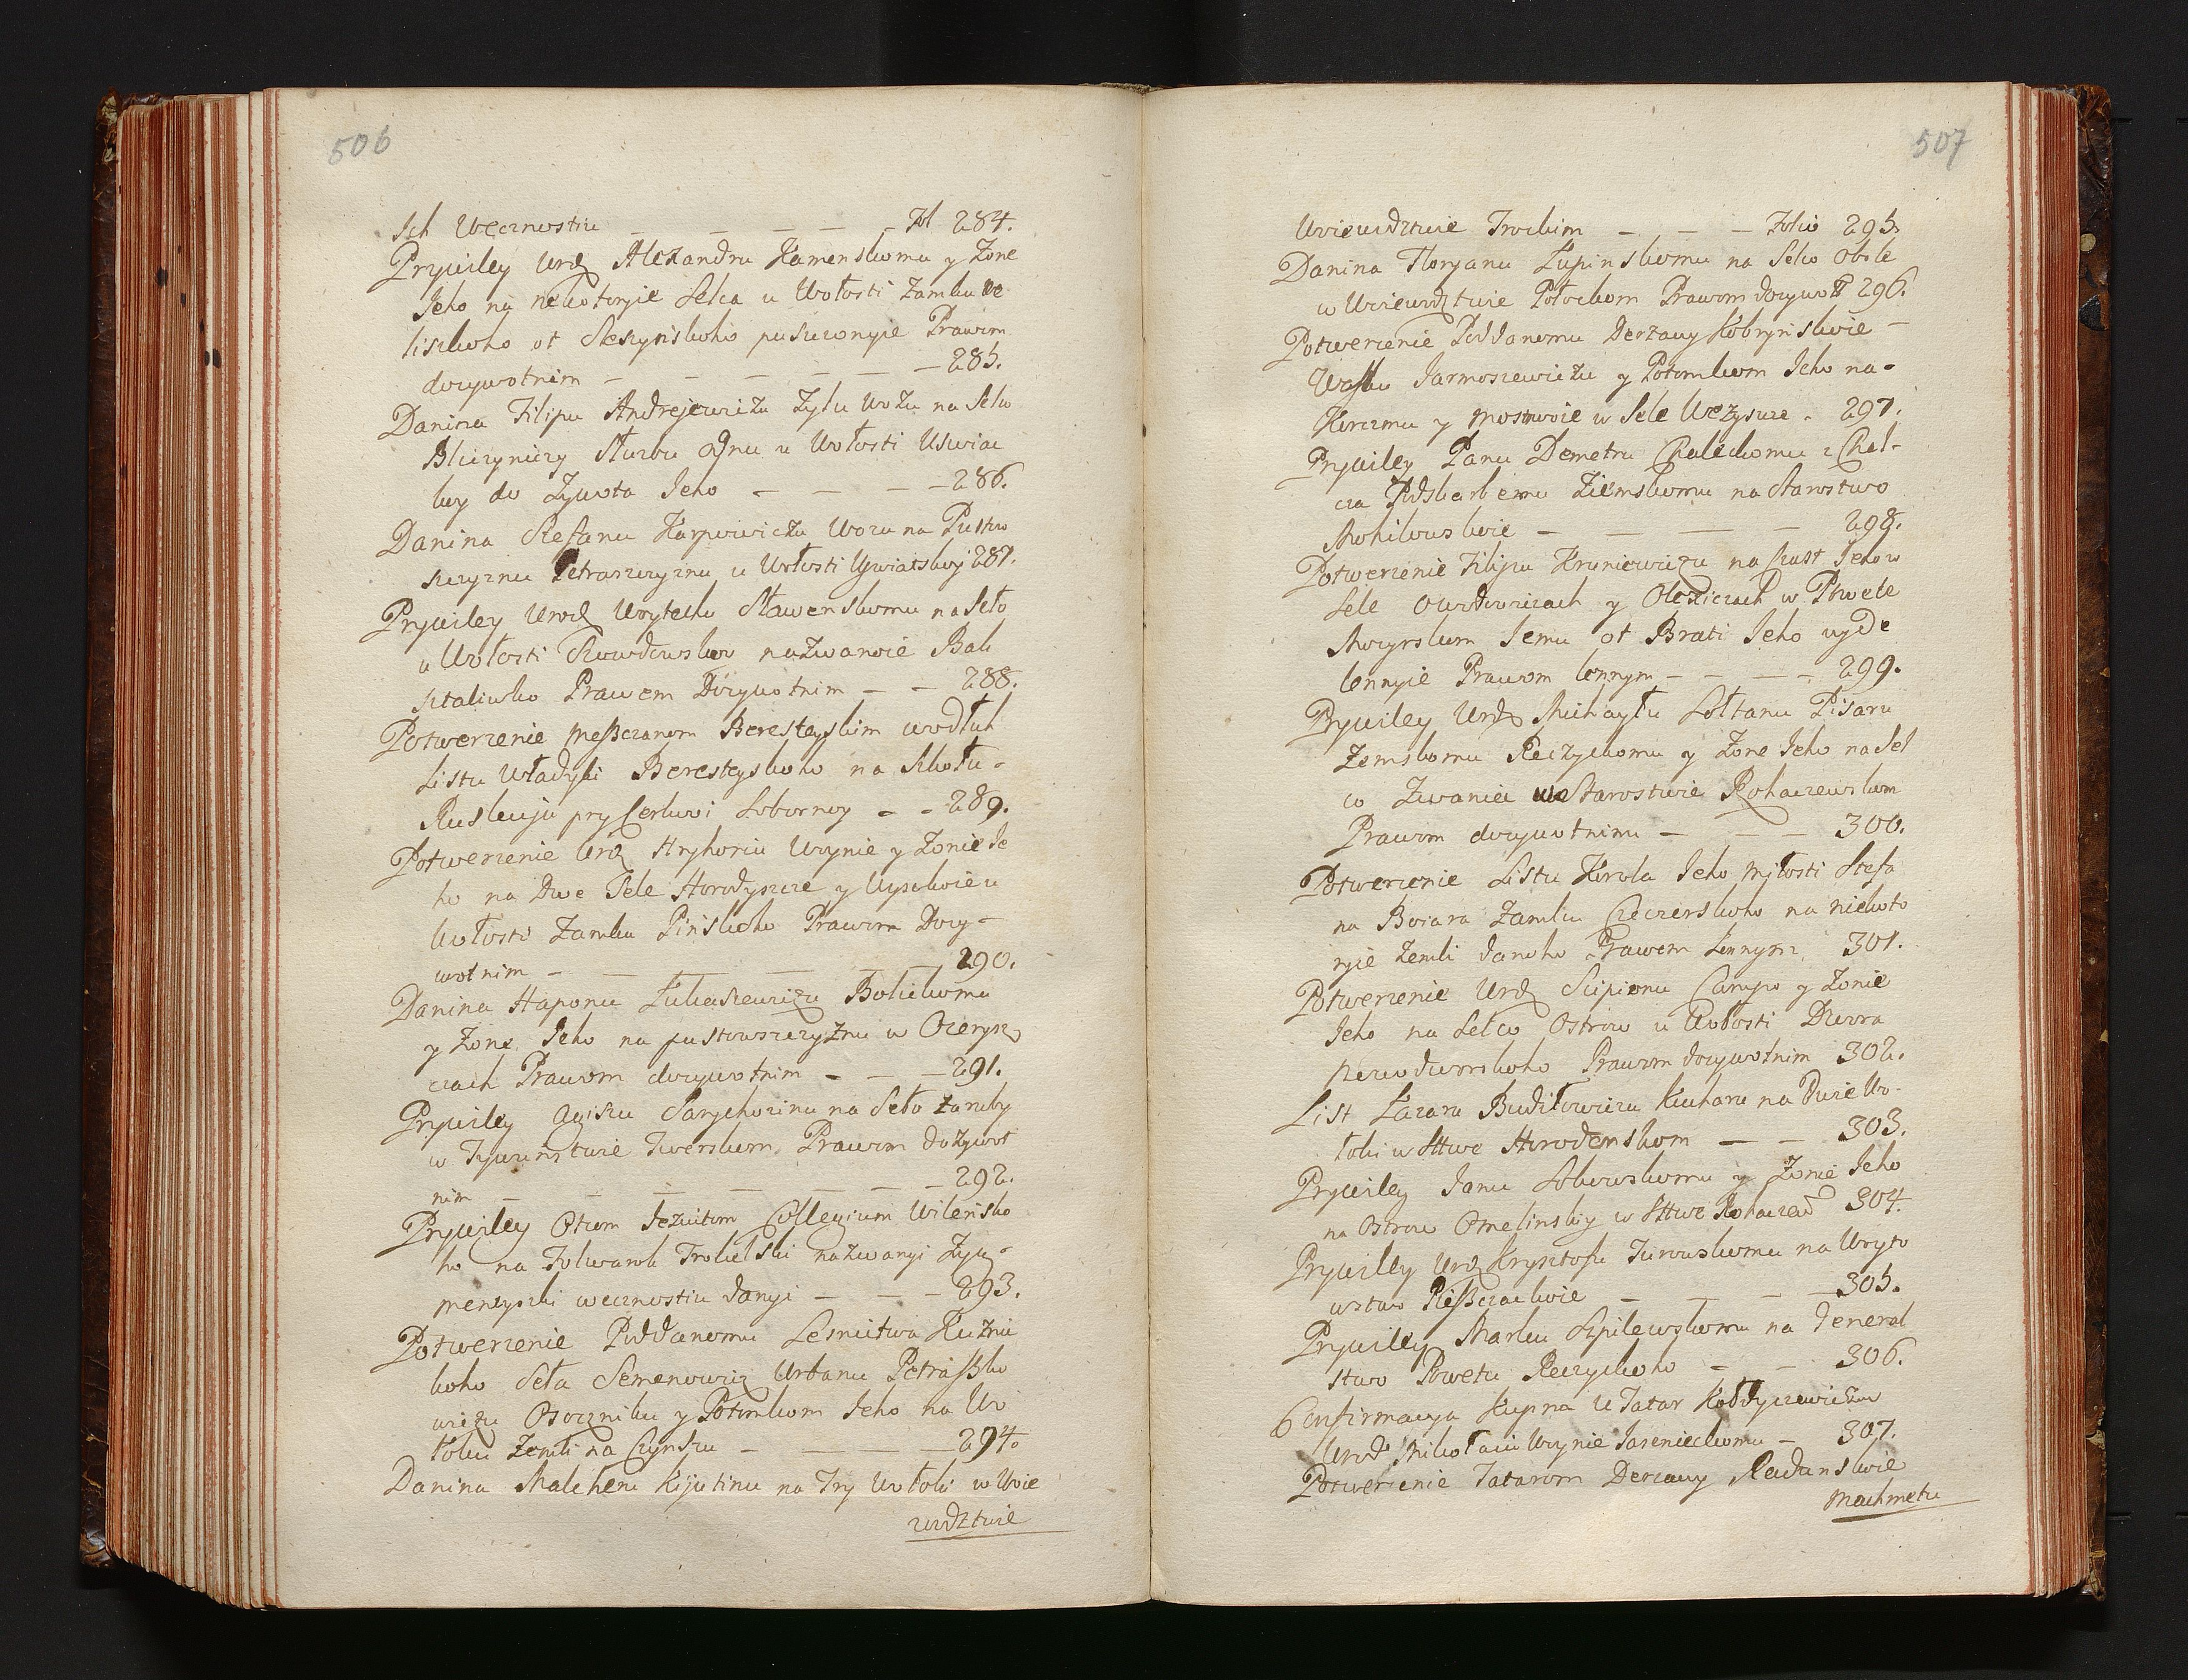 506
Ich Weecznostiu — — — — — fol 284.
Prywiley Urod Alexandru Kamenskomu y Zone
Jeho na nekotoryie Selca u Wołosti Zamku We
liskoho ot Skszynskoho puszczonyie Prawom
dozywotnim — — — — — 285.
Danina Filipu Andrejewiczu Zyłu Wozu na Selco
Służbu odnu u Wołosti Uswiac
koy do Zywota Jeho — — — 286.
Danina Stefanu Karpowiczu Wozu na Pustow
szczyznu Petraszczyznu u Wołosti Uswiatskoj 287.
Prywiley Urod Woytechu Sławenskomu na Seło
u Wołosti nazwanoie Bak
sztaliwko Prawem Dożywotnim — — 288.
Potwerzenie Meszczanom Beresteyskim wodłuh
Listu Władyki Beresteyskoho na Szkołu-
Ruskuju pry Cerkwi Sobornoy — — 289.
Potwerzenie Urod Hryhoriu Woynie y Zonie Je
ho na Dwe Sele Horodyszcze y Wysokoie u
Wołosti Zamku Pińskoho Prawom Dozy-
wotnim — — — — — — 290.
Danina Haponu Łukaszewiczu Bokiewomu
y Zone Jeho na pustowszczyznu w Ozerysz
czach Prawom dozywotnim — — — 291.
Prywiley Agiszu Sarychozinu na Seło Zaruby
w Tywunstwie Twerskom Prawom dozywot
nim — — — — — — 292.
Prywiley Otcom Jezuitom Collegium Wilensko
ho na Folwarok Trokelski nazwanyi Zyw-
mentyszki wecznostiu danyi — — — 293.
Potwerzenie Poddanomu Lesnictwa Kuźnic
koho Seła Semenowicz Urbanu Petraszko
wiczu Osoczniku y Potomkom Jeho na Wo
łoku Zemli na Czynszu — — — — 294.
Danina Malcheru Kijutinu na Try Wołoki w Woie
wodztwie
507
Woiewodztwie Trockim — — — Folio 295.
Danina Floryanu Łupinskomu na Selco Obole
w Woiewodztwie Połockom Prawom dozywott 296.
Potwerzenie Poddanomu Derzawy Kobrynskoie —
Wasku Jarmoszewiczu y Potomkom Jeho na-
Korczmu y Mostowoie w Sele Wezysze - 297.
Prywiley Panu Demetru Chaleckomu z Chal-
cza Podskarbemu Ziemskomu na Starostwo
Mohilowskoie — — — — 298.
Potwerzenie Filipu Kruniewiczu na Czast Jeho w
Sele Owdowiczach y Olexiczach w Powete
Mozyrskom Jemu ot Brati Jeho wyde
lennyie Prawom lennym — — — 299.
Prywiley Urod Michayłu Sołtanu Pisaru
Zemskomu Reczyckomu y Zone Jeho na Sel
co Zwaniec we Starostwie Rohaczewskom
Prawom dozywotnimu — — — 300.
Potwerzenie Listu Korola Jeho Miłosti Stefa
na Boiara Zamku Czeczerskoho na niekoto
ryie Zemli danoho Prawem Lennym 301.
Potwerzenie Urod Scipionu Campo y Zonie
Jeho na Selco Ostrow u Wołosti Dwora
Perewdworskoho Prawom dozywotnim 302.
List Łazaru Budiłowiczu Kucharu na Dwie Wo-
łoki w Sttwe Horodenskom — — 303.
Prywiley Janu Sokowskomu y Zonie Jeho
na Ostrow Omelinskiy w Sttwe Rohaczew 304.
Prywiley Urod Krysztofu Turowskomu na Woyto
wstwo Rieszczackoie — — — — 305.
Prywiley Marku Szpilewskomu na Jeneral
stwo Powetu Reczyckoho — — 306.
Confirmacya Kupna u Tatar Kołdyczewiczow
Urod Mikołaiu Woynie Jasenieckomu — 307.
Potwerzenie Tatarom Derzawy Radunskoie
Machmetu